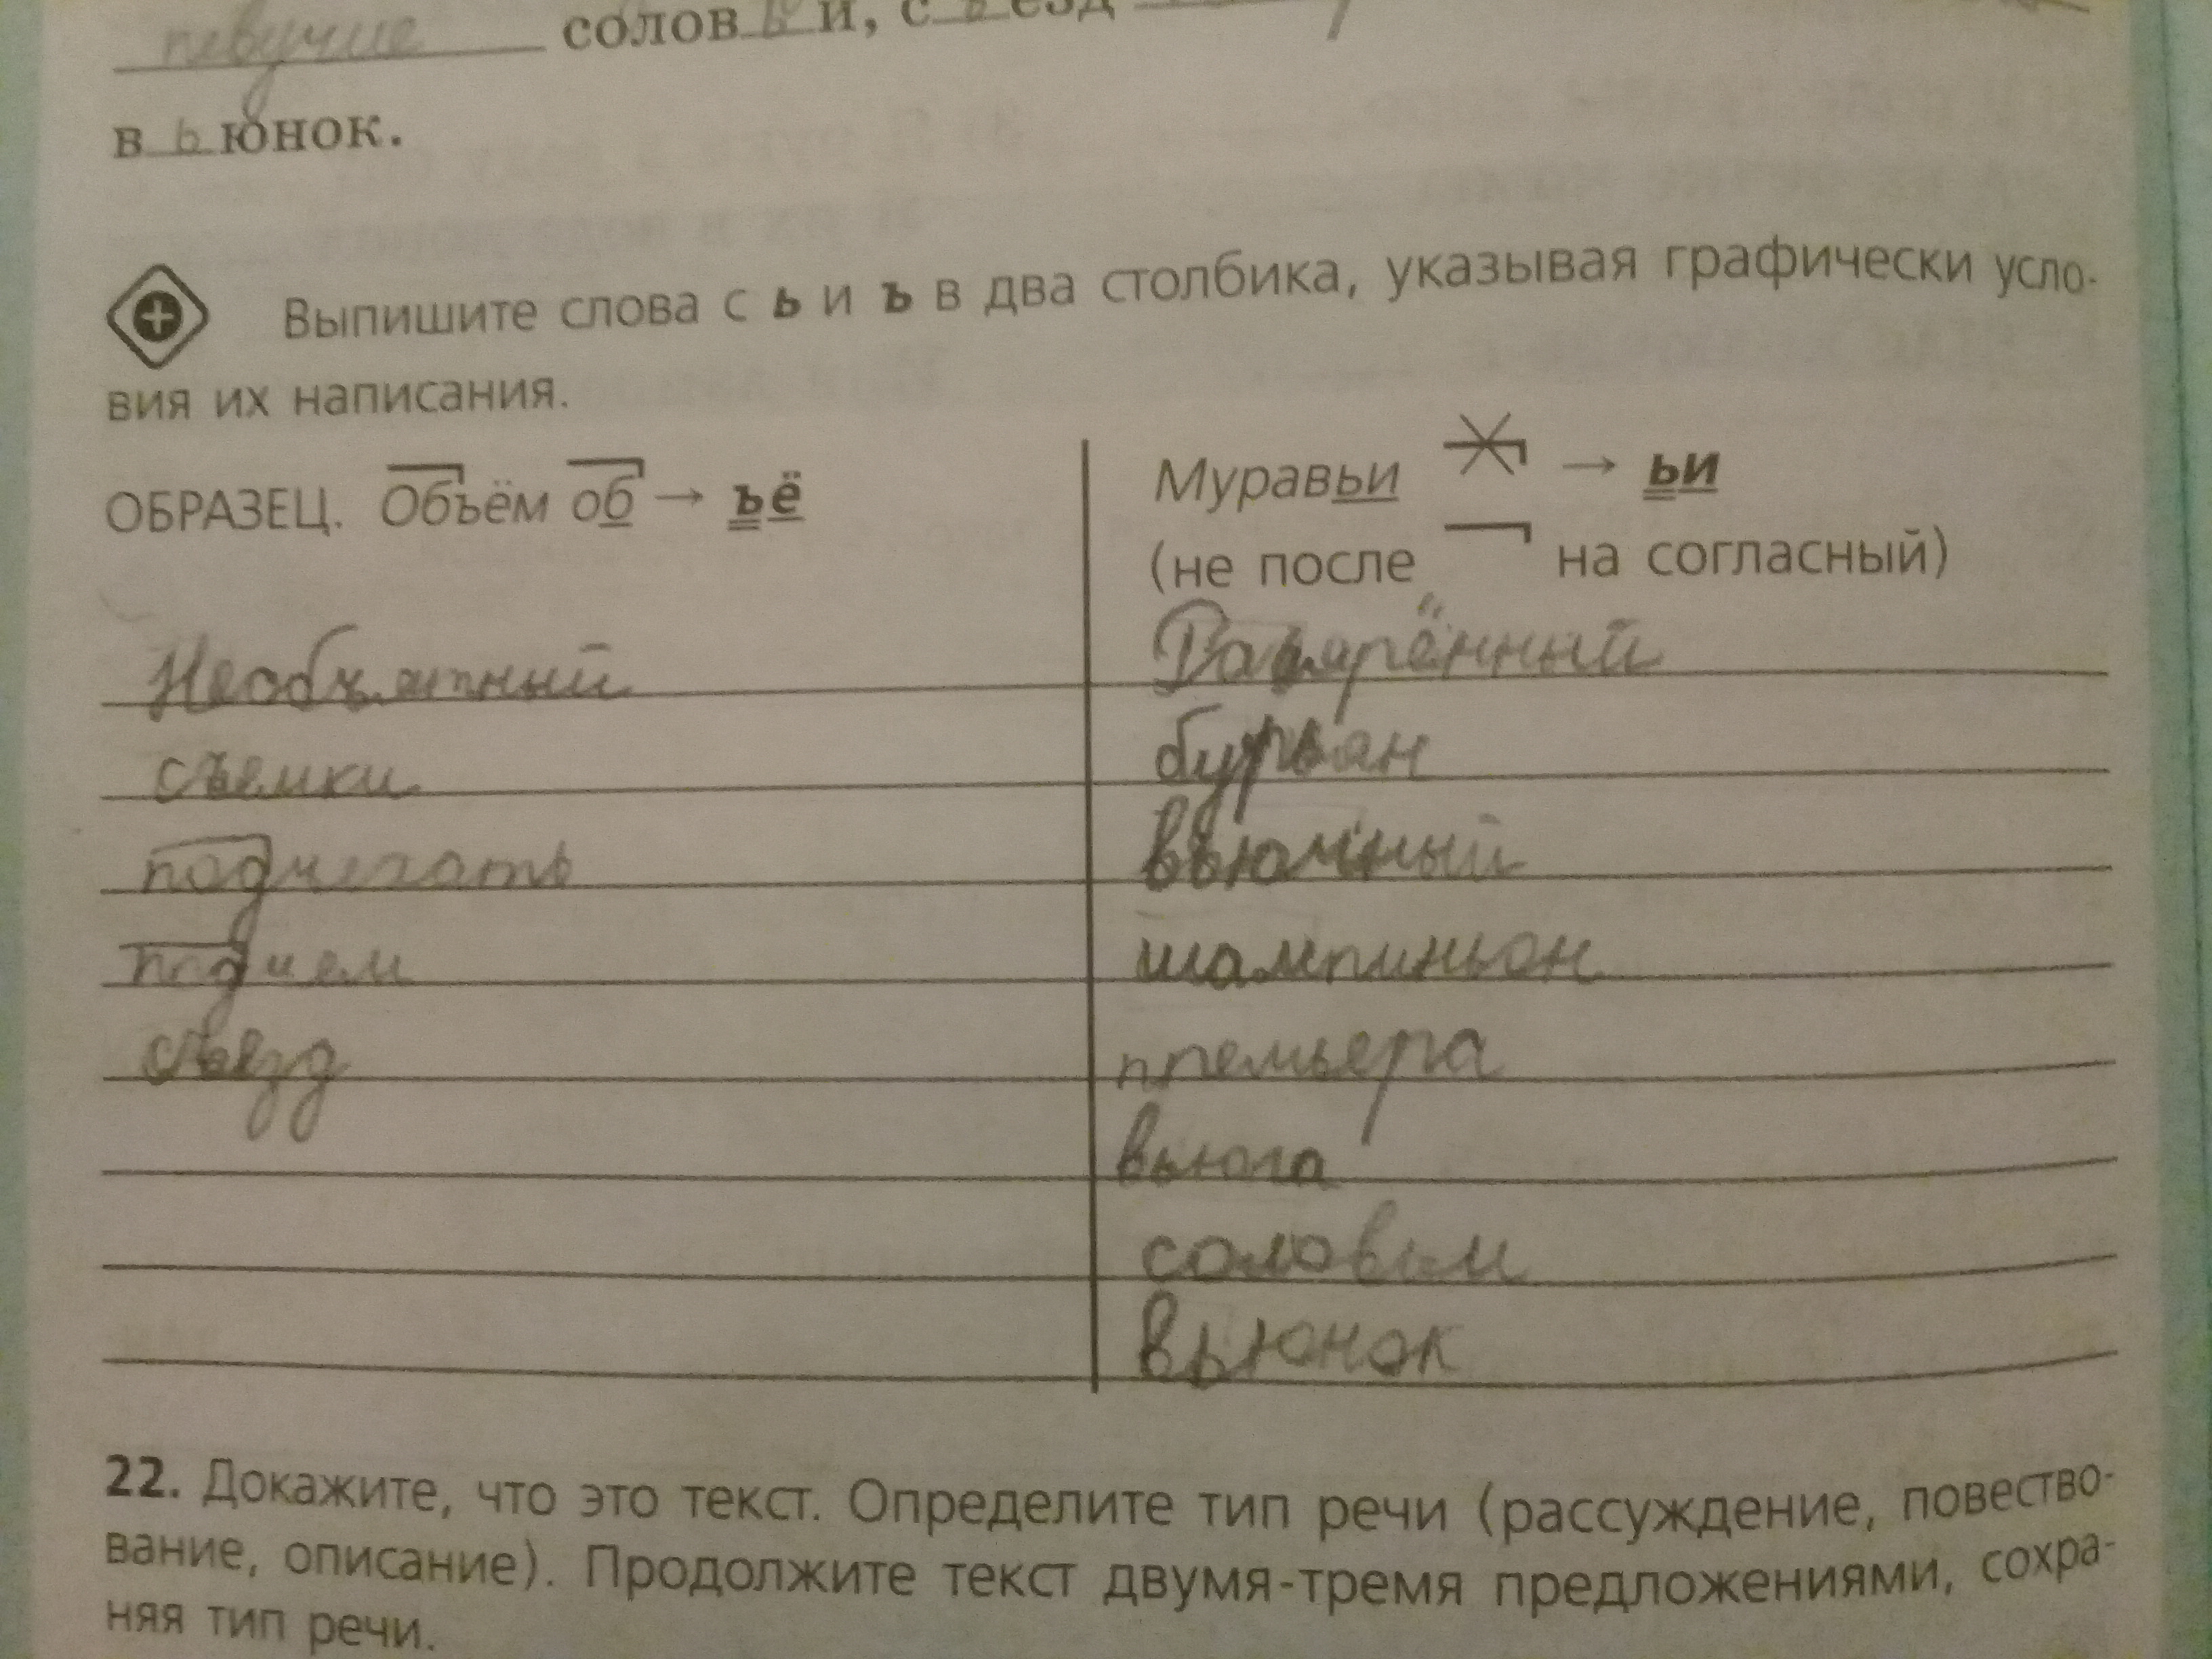 певучие солов ь и, с ъ езд
в ь юнок.
Выпишите слова с ь и ъ в два столбика, указывая графически усло-
вия их написания.
ОБРАЗЕЦ. Объём об → ъё
Муравьи → ьи
(не после на согласный)
Необъятный
съемки
подъехать
подъем
съезд
бурьян
вьюжный
шампиньон
премьера
вьюга
соловьи
вьюнок
22. Докажите, что это текст. Определите тип речи (рассуждение, повество-
вание, описание). Продолжите текст двумя-тремя предложениями, сохра-
няя тип речи.